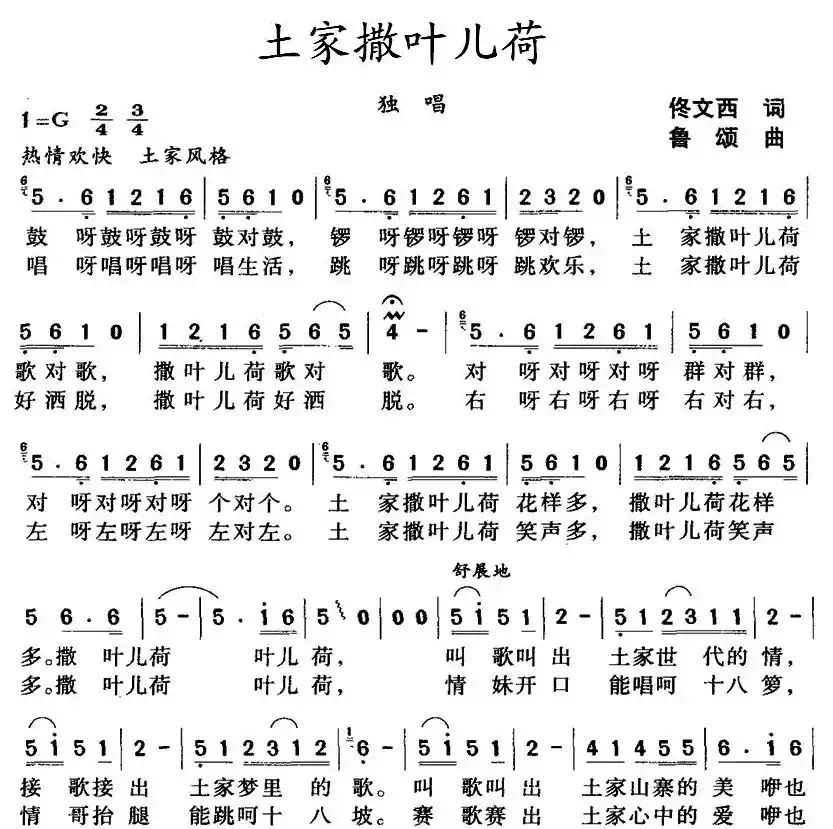 土家撒叶儿荷
独 唱
1=G 2/4 3/4
佟文西 词
鲁 颂 曲
热情欢快 土家风格
5 . 6 1 2 1 6 | 5 6 1 0 | 5 . 6 1 2 6 1 | 2 3 2 0 | 5 . 6 1 2 1 6
鼓 呀鼓呀鼓呀 鼓对鼓, 锣 呀锣呀锣呀 锣对锣, 土 家撒叶儿荷
唱 呀唱呀唱呀 唱生活, 跳 呀跳呀跳呀 跳欢乐, 土 家撒叶儿荷
5 6 1 0 | 1 2 1 6 5 6 5 | 4 - | 5 . 6 1 2 6 1 | 5 6 1 0
歌对歌, 撒叶儿荷歌对 歌。 对 呀对呀对呀 群对群,
好洒脱, 撒叶儿荷好洒 脱。 右 呀右呀右呀 右对右,
5 . 6 1 2 6 1 | 2 3 2 0 | 5 . 6 1 2 1 6 | 5 6 1 0 | 1 2 1 6 5 6 5
对 呀对呀对呀 个对个。 土 家撒叶儿荷 花样多, 撒叶儿荷花样
左 呀左呀左呀 左对左。 土 家撒叶儿荷 笑声多, 撒叶儿荷笑声
舒展地
5 6 . 6 | 5 - | 5 . i 6 | 5 0 | 0 0 | 5 i 5 1 | 2 - | 5 1 2 3 1 1 | 2 -
多。撒 叶儿荷 叶儿 荷, 叫 歌叫 出 土家世 代的 情,
多。撒 叶儿荷 叶儿 荷, 情 妹开 口 能唱呵 十八 箩,
5 i 5 1 | 2 - | 5 1 2 3 1 2 | 6 - | 5 i 5 1 | 2 - | 4 1 4 5 5 | 6 . i 6
接 歌接 出 土家梦里 的 歌。 叫 歌叫 出 土家山寨的 美 咿也
情 哥抬 腿 能跳呵十 八 坡。 赛 歌赛 出 土家心中的 爱 咿也